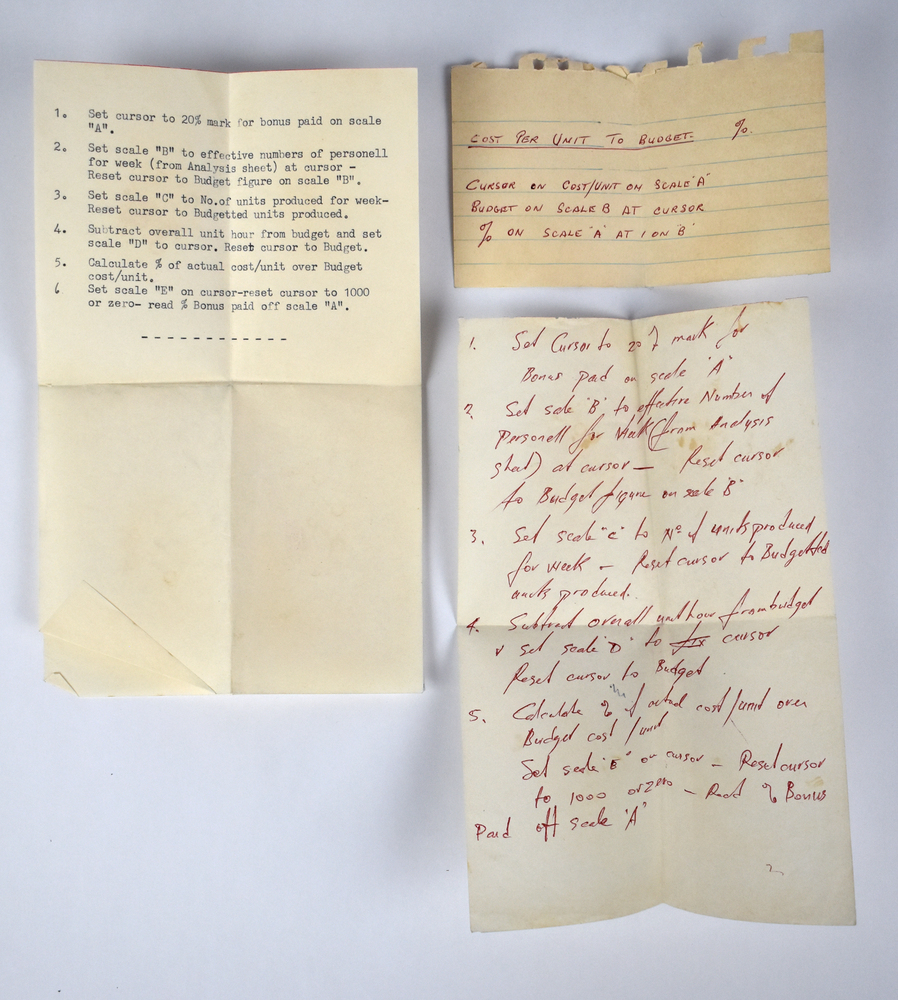 1. Set cursor to 20% mark for bonus paid on scale
"A".
2. Set scale "B" to effective numbers of personell
for week (from Analysis sheet) at cursor -
Reset cursor to Budget figure on scale "B".
3. Set scale "C" to No.of units produced for week-
Reset cursor to Budgetted units produced.
4. Subtract overall unit hour from budget and set
scale "D" to cursor. Reset cursor to Budget.
5. Calculate % of actual cost/unit over Budget
cost/unit.
6 Set scale "E" on cursor-reset cursor to 1000
or zero- read % Bonus paid off scale "A".
------------
COST PER UNIT TO BUDGET. %.
CURSOR ON COST/UNIT ON SCALE "A"
BUDGET ON SCALE B AT CURSOR
% ON SCALE 'A' AT 1 ON 'B'
1. Set Cursor to 20 % mark for
Bonus paid on scale "A"
2. Set scale "B" to effective Number of
Personell for Week (from Analysis
sheet) at cursor — Reset cursor
to Budget figure on scale "B"
3. Set scale "C" to Nº of units produced
for week – Reset cursor to Budgetted
units produced.
4. Subtract overall unit hour from budget
& set scale "D" to fix cursor
Reset cursor to Budget
5. Calculate % of actual cost/unit over
Budget cost/unit
Set scale "E" on cursor – Reset cursor
to 1000 or zero – Read % Bonus
Paid off scale "A"